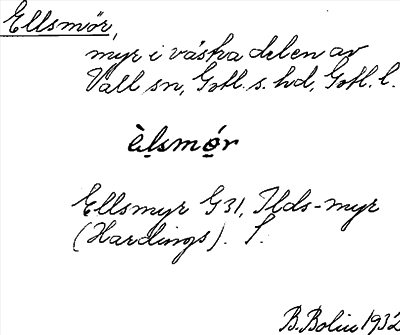 Ellsmör,
myr i västra delen av
Vall sn, Gotl. s. hd, Gotl. l.
èlsmór
Ellsmyr G31, Ilds-myr
(Hardings). f.
B. Bolin 1932